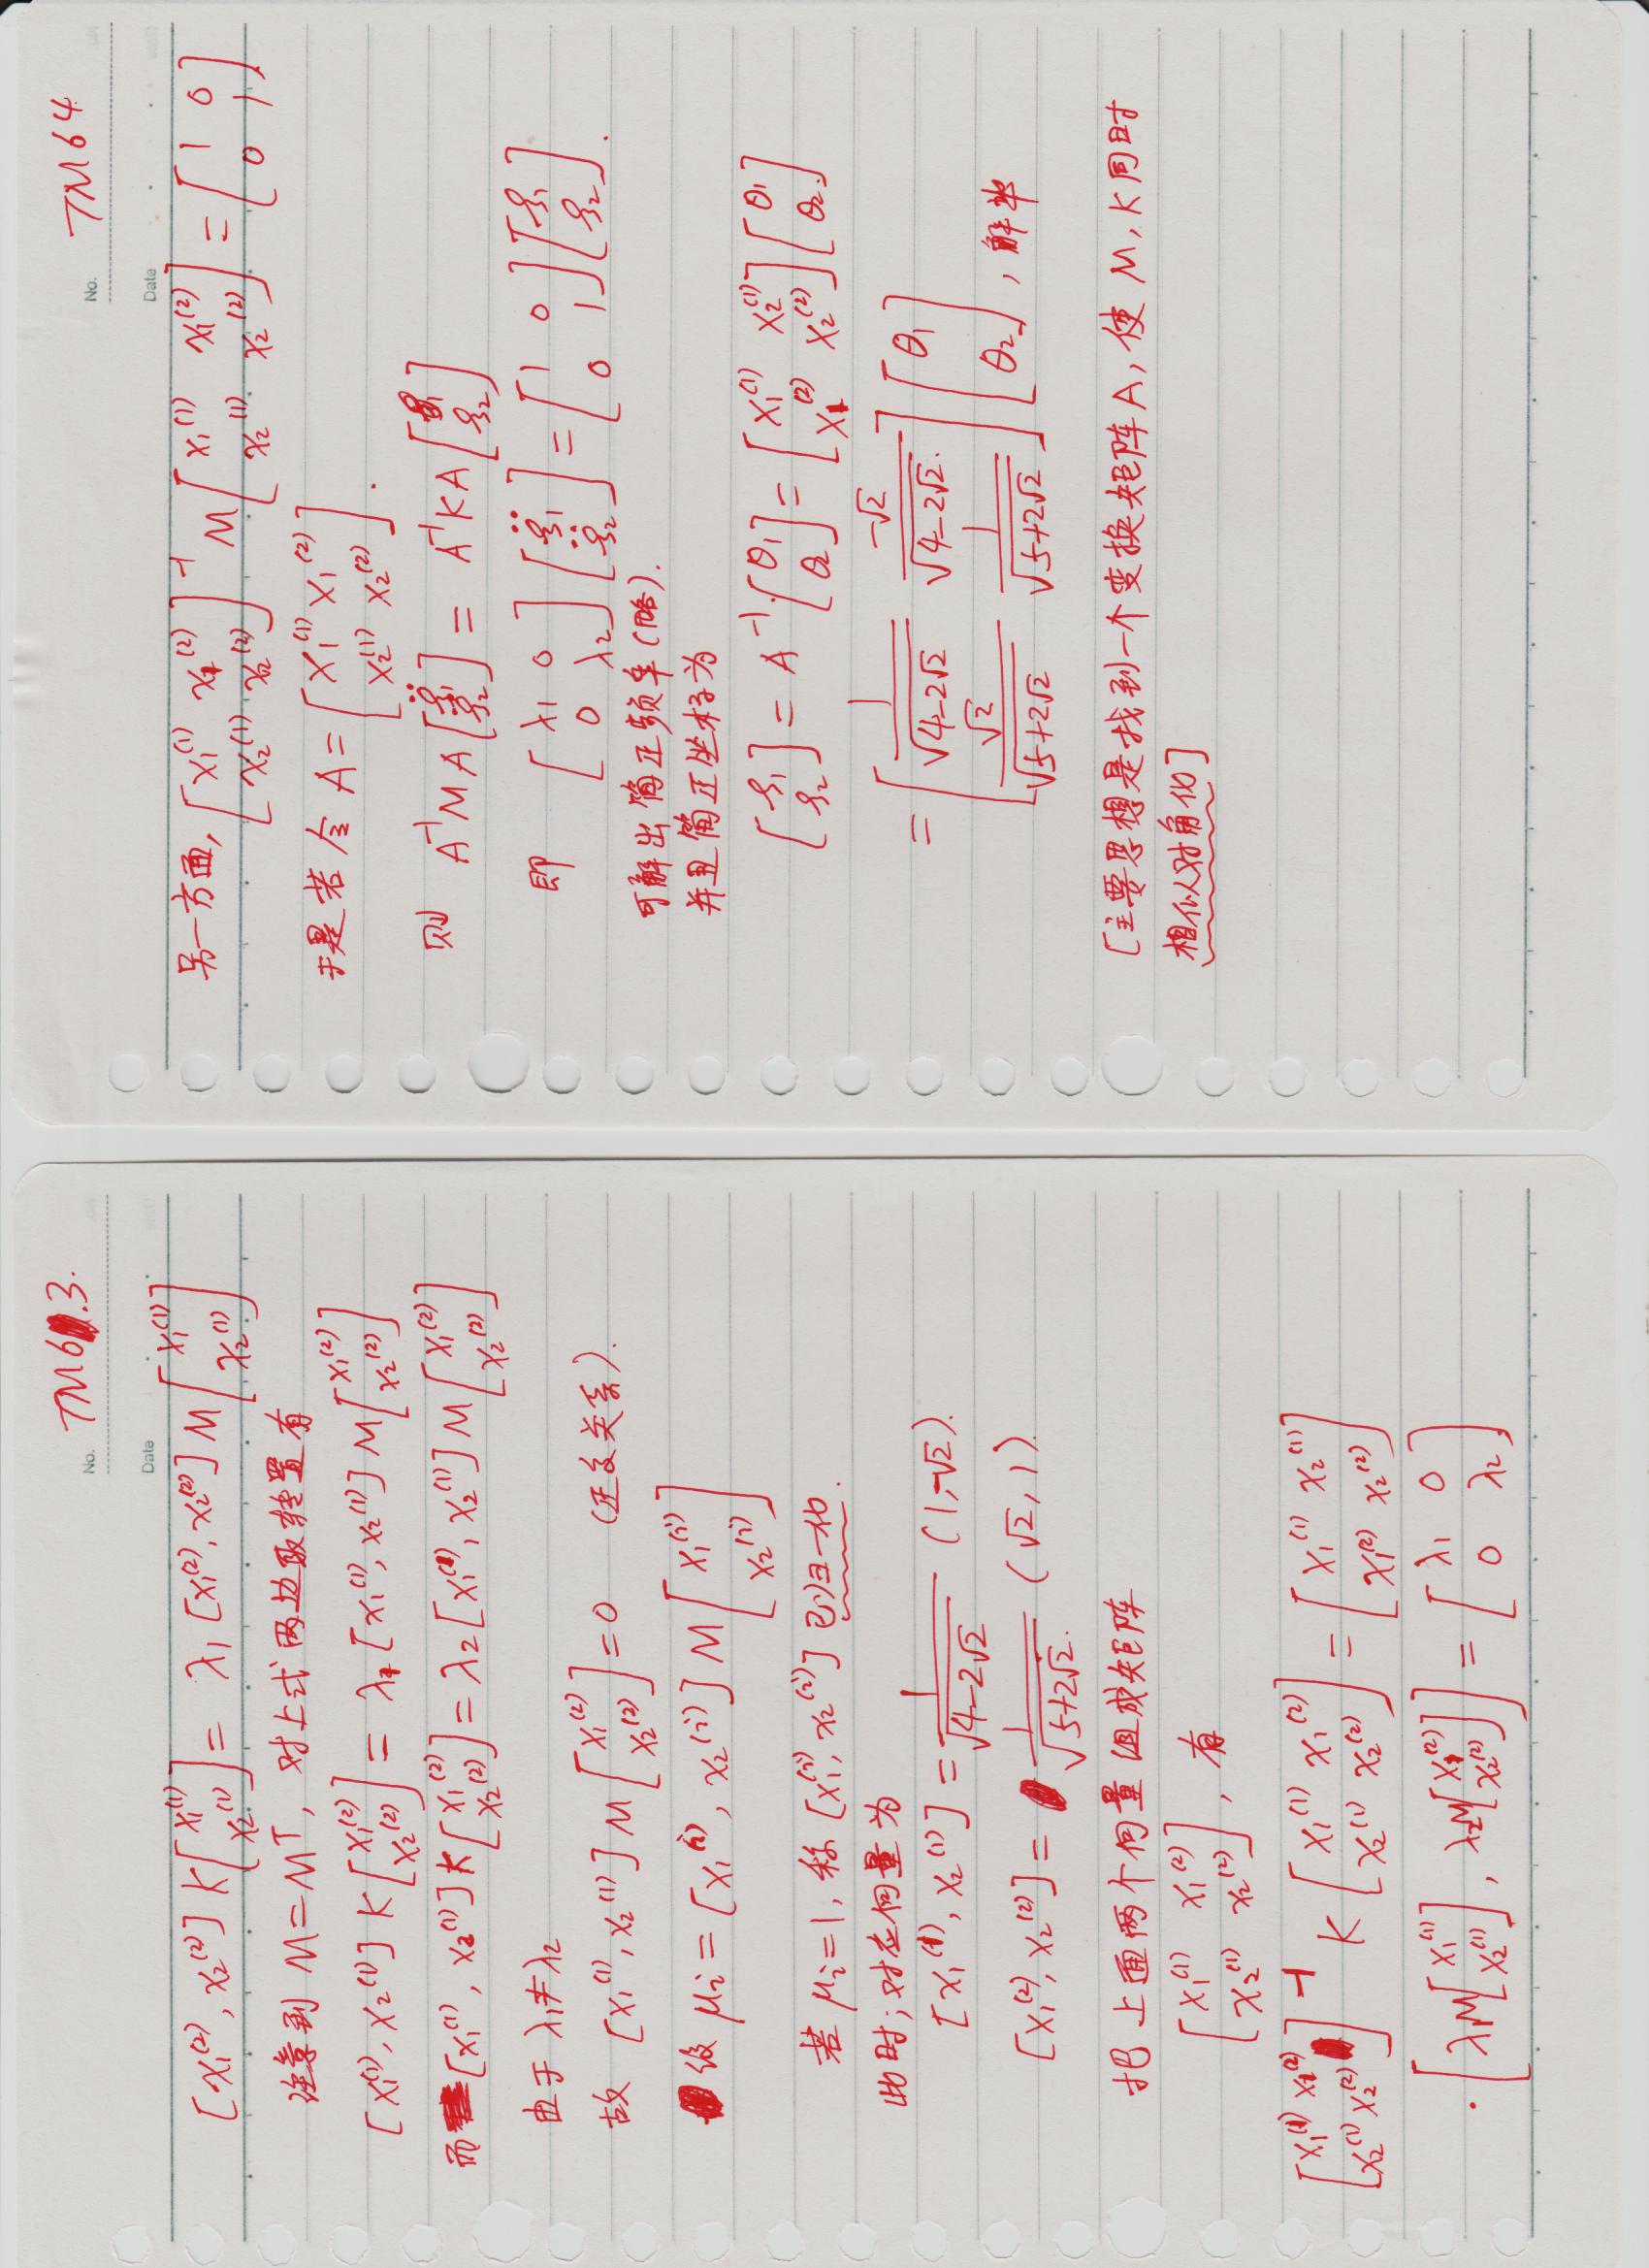 No. TM6.3.
Date
[x₁⁽²⁾, x₂⁽²⁾] K [x₁⁽¹⁾; x₂⁽¹⁾] = λ₁ [x₁⁽²⁾, x₂⁽²⁾] M [x₁⁽¹⁾; x₂⁽¹⁾]
注意到 M=Mᵀ, 对上式两边取转置有
[x₁⁽¹⁾, x₂⁽¹⁾] K [x₁⁽²⁾; x₂⁽²⁾] = λ₁ [x₁⁽¹⁾, x₂⁽¹⁾] M [x₁⁽²⁾; x₂⁽²⁾]
而 [x₁⁽¹⁾, x₂⁽¹⁾] K [x₁⁽²⁾; x₂⁽²⁾] = λ₂ [x₁⁽¹⁾, x₂⁽¹⁾] M [x₁⁽²⁾; x₂⁽²⁾]
由于 λ₁≠λ₂
故 [x₁⁽¹⁾, x₂⁽¹⁾] M [x₁⁽²⁾; x₂⁽²⁾] = 0 (正交关系).
设 μᵢ = [x₁⁽ⁱ⁾, x₂⁽ⁱ⁾] M [x₁⁽ⁱ⁾; x₂⁽ⁱ⁾]
若 μᵢ=1, 称 [x₁⁽ⁱ⁾, x₂⁽ⁱ⁾] 已归一化.
此时; 对应向量为
[x₁⁽¹⁾, x₂⁽¹⁾] = 1/√(4-2√2) (1,-√2).
[x₁⁽²⁾, x₂⁽²⁾] = 1/√(5+2√2.) (√2, 1).
把上面两个向量组成矩阵
[x₁⁽¹⁾ x₁⁽²⁾; x₂⁽¹⁾ x₂⁽²⁾], 有
[x₁⁽¹⁾ x₁⁽²⁾; x₂⁽¹⁾ x₂⁽²⁾]⁻¹ K [x₁⁽¹⁾ x₁⁽²⁾; x₂⁽¹⁾ x₂⁽²⁾] = [x₁⁽¹⁾ x₂⁽¹⁾; x₁⁽²⁾ x₂⁽²⁾]
· [λ₁M[x₁⁽¹⁾; x₂⁽¹⁾], λ₂M[x₁⁽²⁾; x₂⁽²⁾]] = [λ₁ 0; 0 λ₂]
No. TM64
Date
另一方面, [x₁⁽¹⁾ x₁⁽²⁾; x₂⁽¹⁾ x₂⁽²⁾]⁻¹ M [x₁⁽¹⁾ x₁⁽²⁾; x₂⁽¹⁾ x₂⁽²⁾] = [1 0; 0 1]
于是若令 A = [x₁⁽¹⁾ x₁⁽²⁾; x₂⁽¹⁾ x₂⁽²⁾].
则 A⁻¹MA [ξ̈₁; ξ̈₂] = A⁻¹KA [ξ₁; ξ₂]
即 [λ₁ 0; 0 λ₂] [ξ̈₁; ξ̈₂] = [1 0; 0 1] [ξ₁; ξ₂].
可解出简正频率(略).
并且简正坐标为
[ξ₁; ξ₂] = A⁻¹·[θ₁; θ₂] = [x₁⁽¹⁾ x₂⁽¹⁾; x₁⁽²⁾ x₂⁽²⁾] [θ₁; θ₂]
= [1/√(4-2√2) -√2/√(4-2√2.); √2/√(5+2√2) 1/√(5+2√2)] [θ₁; θ₂], 解毕
[主要思想是找到一个变换矩阵A, 使 M, K同时
相似对角化]